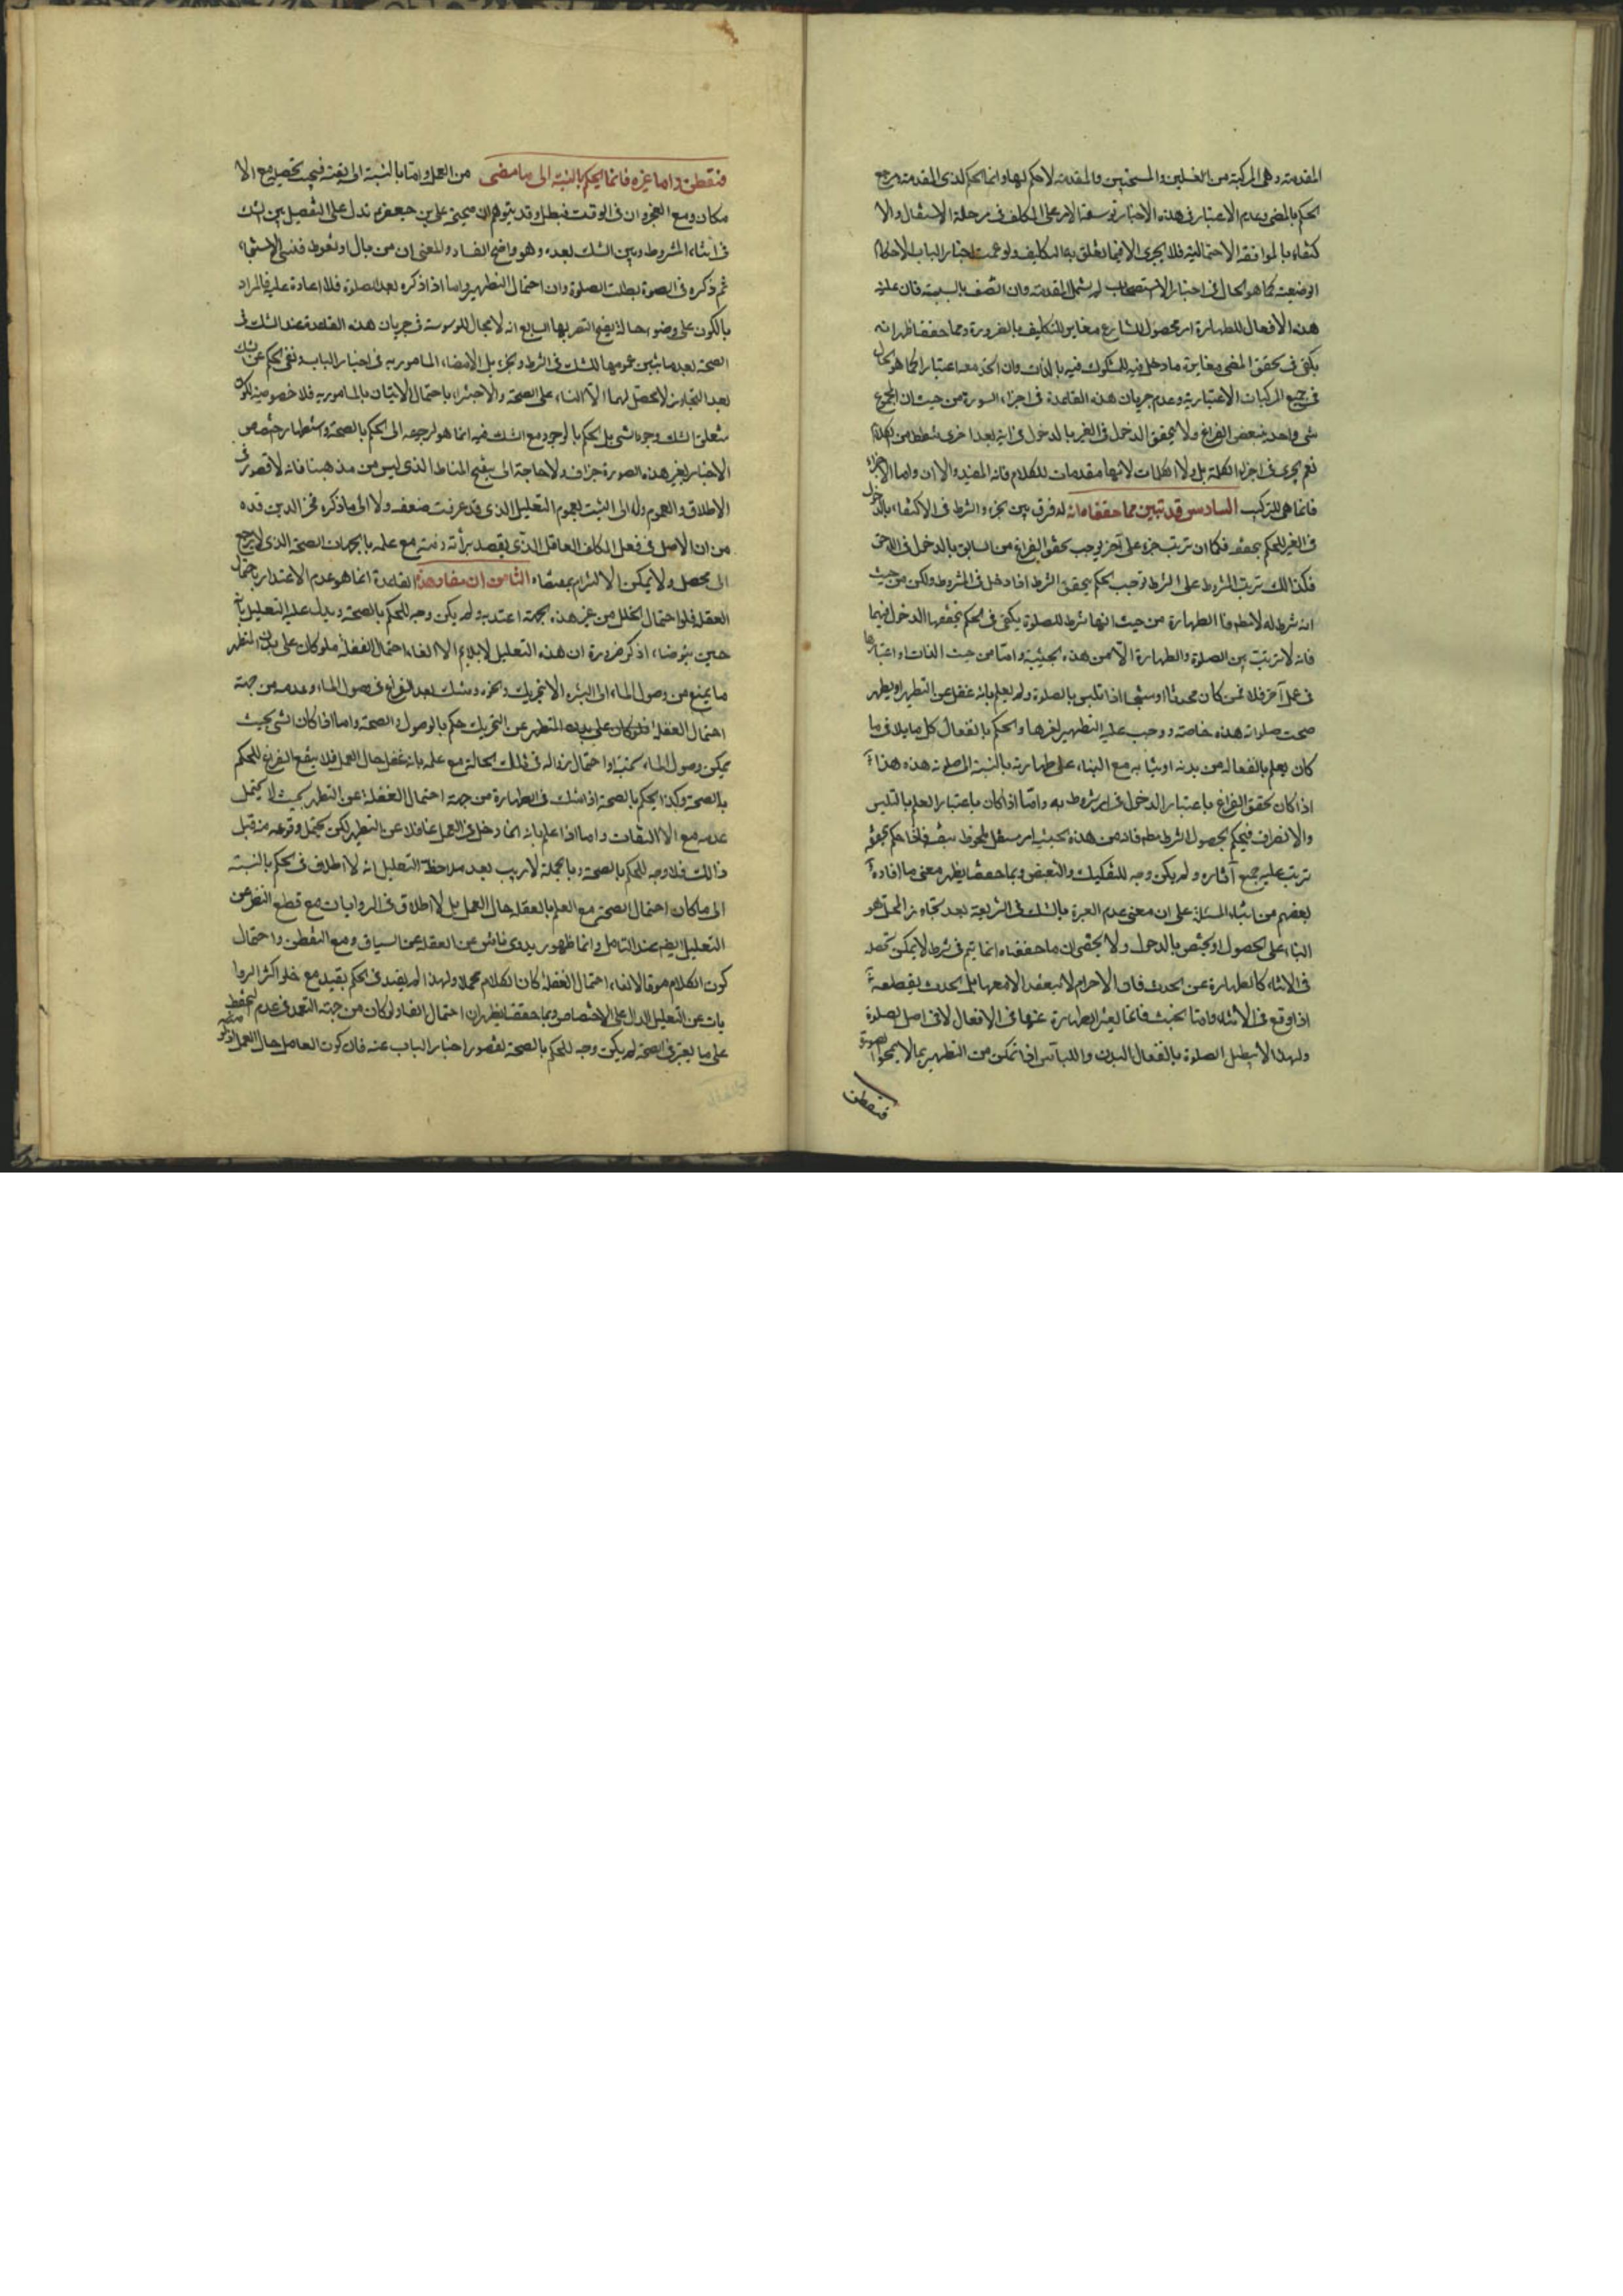 المقدمة وهى المركبة من الغسلين والمسحتين والمقدمة لا حكم لها وانما الحكم لذى المقدمة ومرجع
الحكم بالمضى وعدم الاعتبار فى هذه الاخبار توسعة الامر على المكلف فى مرحلة الامتثال والا
كتفاء بالموافقة الاحتمالية فلا يجرى الا فيما تعلق به التكليف ولو عمت اخبار الباب الاحكام
الوضعية كما هو الحال فى اخبار الاستصحاب لم يشمل المقدمة وان اتصف بالسببية فان علية
هذه الافعال للطهارة امر محصول للشارع مغاير للتكليف بالضرورة ومما حققنا ظهر انه
يكفى فى تحقق المضى مغايرة ما دخل فيه للمشكوك فيه بالذات وان اتحد معه اعتبارا كما هو الحال
فى جميع المركبات الاعتبارية وعدم جريان هذه القاعدة فى اجزاء السورة من حيث ان المجموع
شى واحد فبعض الفراغ ولا يتحقق الدخول فى الغير بالدخول فى اية بعد اخرى شطط من الكلام
نعم لا يجرى فى اجزاء الكلمة بل ولا الكلمات لانها مقدمات للكلام فانه المفيد والاان واما الاجزاء
فانما هى للتركيب السادس قد تبين مما حققناه انه لا فرق بين الجزء والشرط فى الاكتفاء بالدخول
فى الغير للحكم بتحققه فكما ان ترتب جزء على آخر يوجب تحقق الفراغ من السابق بالدخول فى اللاحق
فكذالك ترتب المشروط على الشرط توجب الحكم بتحقق الشرط اذا دخل فى المشروط ولكن من حيث
انه شرط له لا مطلقا فالطهارة من حيث انها شرط للصلوة يكتفى فى الحكم بتحققها الدخول فيها
فانه لا ترتب بين الصلوة والطهارة الا من هذه الحيثية واما من حيث الذات واعتبارها
فى عمل آخر فلا فمن كان محدثا او متنجسا اذا تلبس بالصلوة ولم يعلم بانه غفل عن التطهير او يطهر
صحت صلوته هذه خاصة ووجب عليه التطهير لغيرها والحكم بانفعال كل ما يلاقى ما
كان يعلم بانفعاله من بدنه او ثيابه مع البناء على طهارته بالنسبة الى صلوته هذه هذا
اذا كان تحقق الفراغ باعتبار الدخول فى امر مشروط به واما اذا كان باعتبار العلم بالتلبس
والانصراف فيحكم بحصول الشرط مطلقا فانه من هذه الحيثية امر مستقل ملحوظ بنفسه فاذا حكم بتحققه
ترتب عليه جميع آثاره ولم يكن وجه للتفكيك والتبعيض وبما حققنا يظهر معنى ما افاده
بعضهم من ابتناء المسئلة على ان معنى عدم العبرة بالشك فى الشريعة بعد تجاوز المحل هو
البناء على الحصول او يختص بالدخول ولا يخفى ان ما حققناه انما يتم فى شرط لا يمكن تحصيله
فى الاثناء كالطهارة عن الحدث فان الاحرام لا ينعقد الا معها بل الحدث يقطعه
اذا وقع فى الاثناء واما الخبث فانما يعتبر الطهارة عنها فى الافعال لا فى اصل الصلوة
ولهذا لا تبطل الصلوة بانفعال البدن واللباس اذا تمكن من التطهير بما لا يمحو الصورة
فتفطن
فتفطن واما غيره فانما الحكم بالنسبة الى ما مضى من العمل واما بالنسبة الى بقيته فيجب تحصيله مع الا
مكان ومع العجز وان فى الوقت فبطل وقد يتوهم ان صحيحة على بن جعفر تدل على التفصيل بين الشك
فى اثناء المشروط وبين الشك بعده وهو واضح الفساد والمعنى ان من بال او تغوط فنسى الاستنجاء
ثم ذكره فى الصلوة بطلت الصلوة وان احتمال التطهير واما اذا ذكره بعد الصلوة فلا اعادة عليه فالمراد
بالكون على وضوء حالة يصح التعبير بها السابع انه لا مجال للوسوسة فى جريان هذه القاعدة عند الشك فى
الصحة بعد ما تبين عمومها للشك فى الشرط والجزء بل الامضاء المامور به فى اخبار الباب ونفى الحكم عن الشك
بعد التجاوز لا يحصل لهما الا البناء على الصحة والاجتزاء باحتمال الاتيان بالمامور به فلا خصوصية لكون
متعلق الشك وجود الشى بل الحكم بالوجود مع الشك فيه انما هو لرجوعه الى الحكم بالصحة واستظهار اختصاص
الاخبار بغير هذه الصورة جزاف ولا حاجة الى تنقيح المناط الذى ليس من مذهبنا فانه لا قصور فى
الاطلاق والعموم ولا الى التثبت بعموم التعليل الذى قد عرفت ضعفه ولا الى ما ذكره فخر الدين قده
من ان الاصل فى فعل المكلف العاقل الذى يقصد برائة ذمته مع علمه بالجهات الصحة الذى لا يرجع
الى محصل ولا يمكن الالتزام بمقتضاه الثامن ان مفاد هذه القاعدة انما هو عدم الاعتداد باحتمال
الغفلة فلو احتمال الخلل من غير هذه الجهة اعتد به ولم يكن وجه للحكم بالصحة ويدل عليه التعليل بانه
حين يتوضا اذكر ضرورة ان هذه التعليل لا يلايم الا الغاء احتمال الغفلة فلو كان على يدى المتطهر
ما يمنع من وصول الماء الى البشرة الا بتحريك ونحوه وشك بعد الفراغ فى وصول الماء وعدمه من جهة
احتمال الغفلة فلو كان على يد المتطهر عن التحريك حكم بالوصول والصحة واما اذا كان الشى بحيث
يمكن وصول الماء تحته واحتمال زواله فى تلك الحالة مع علمه بانه غفل حال العمل فلا ينفع الفراغ للحكم
بالصحة وكذا الحكم بالصحة اذا شك فى الطهارة من جهة احتمال الغفلة عن التطهير بحيث لا يحتمل
عدمه مع الالتفات واما اذا علم بانه انما دخل فى العمل غافلا عن التطهير لكن يحتمل وقوعه منه قبل
ذالك فلا وجه للحكم بالصحة وبالجملة لا ريب بعد ملاحظة التعليل انه لا اطلاق فى الحكم بالنسبة
الى ما كان احتمال الصحة مع العلم بالغفلة حال العمل بل لا اطلاق فى الروايات مع قطع النظر عن
التعليل ايضا عند التامل وانما ظهور بدوى ناش عن الغفلة عن السياق ومع التفطن واحتمال
كون الكلام مسوقا لالغاء احتمال الغفلة كان الكلام مجملا ولهذا لم يقيد فى الحكم بقيد مع خلو اكثر الروا
يات عن التعليل الدال على الاختصاص وبما حققنا يظهر ان احتمال الفساد لو كان من جهة التعمد فى عدم التحفظ
على ما يعتبر فى الصحة لم يكن وجه للحكم بالصحة لقصور اخبار الباب عنه فان كون العامل حال العمل اذكر